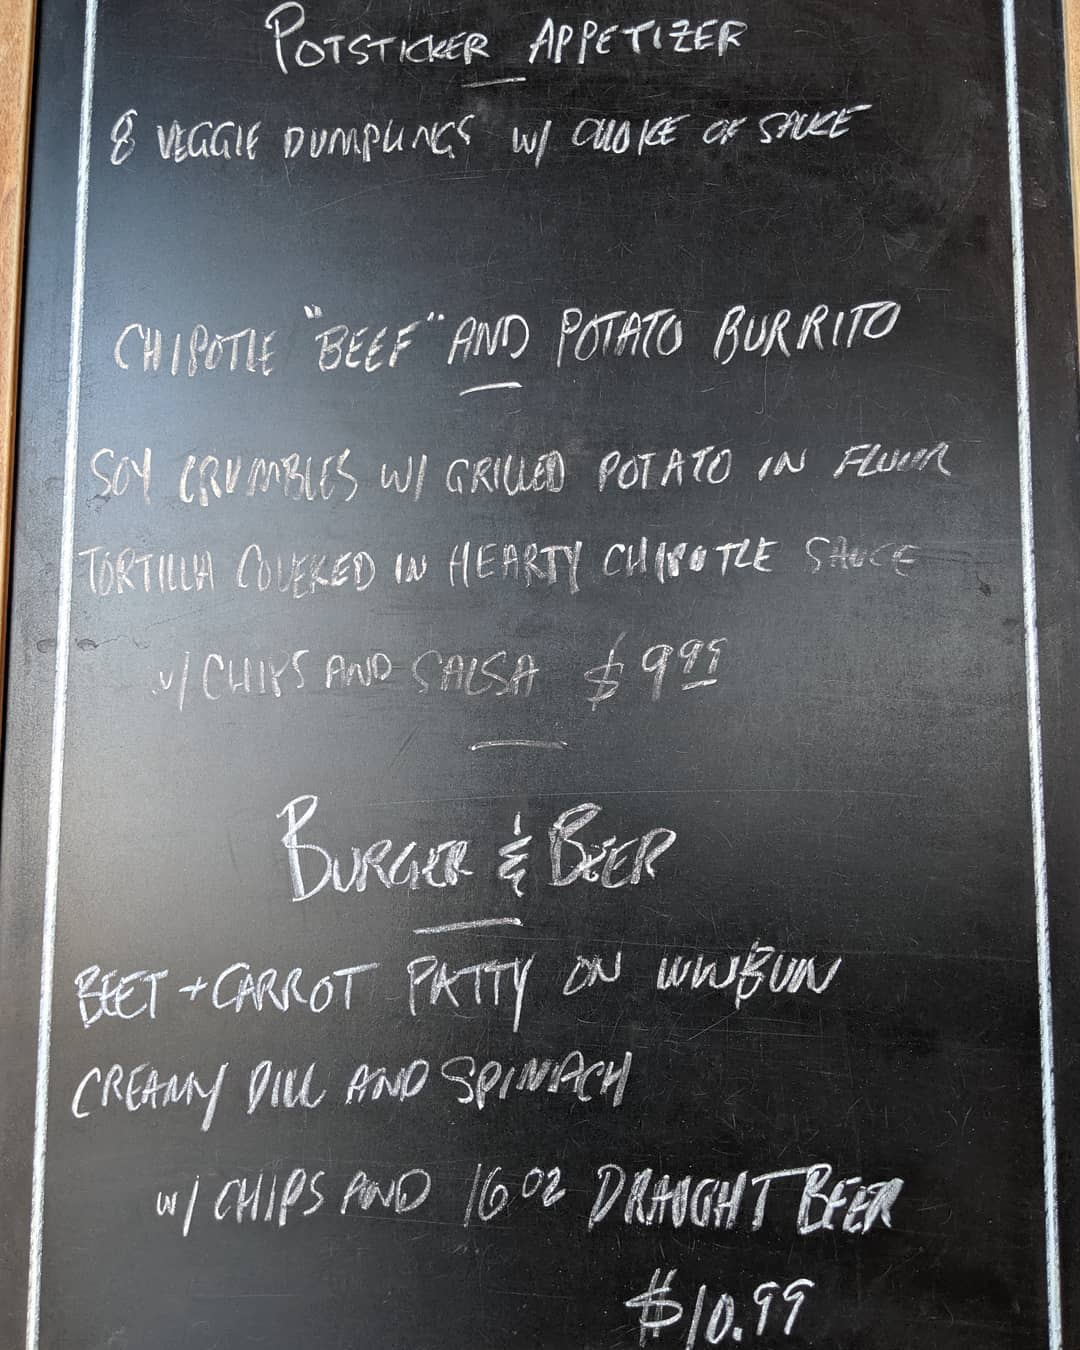 POTSTICKER APPETIZER
8 VEGGIE DUMPLINGS W/ CHOICE OF SAUCE
CHIPOTLE "BEEF" AND POTATO BURRITO
SOY CRUMBLES W/ GRILLED POTATO IN FLOUR
TORTILLA COVERED IN HEARTY CHIPOTLE SAUCE
W/ CHIPS AND SALSA $9.99
BURGER & BEER
BEET + CARROT PATTY ON WW BUN
CREAMY DILL AND SPINACH
W/ CHIPS AND 16 OZ DRAUGHT BEER
$10.99